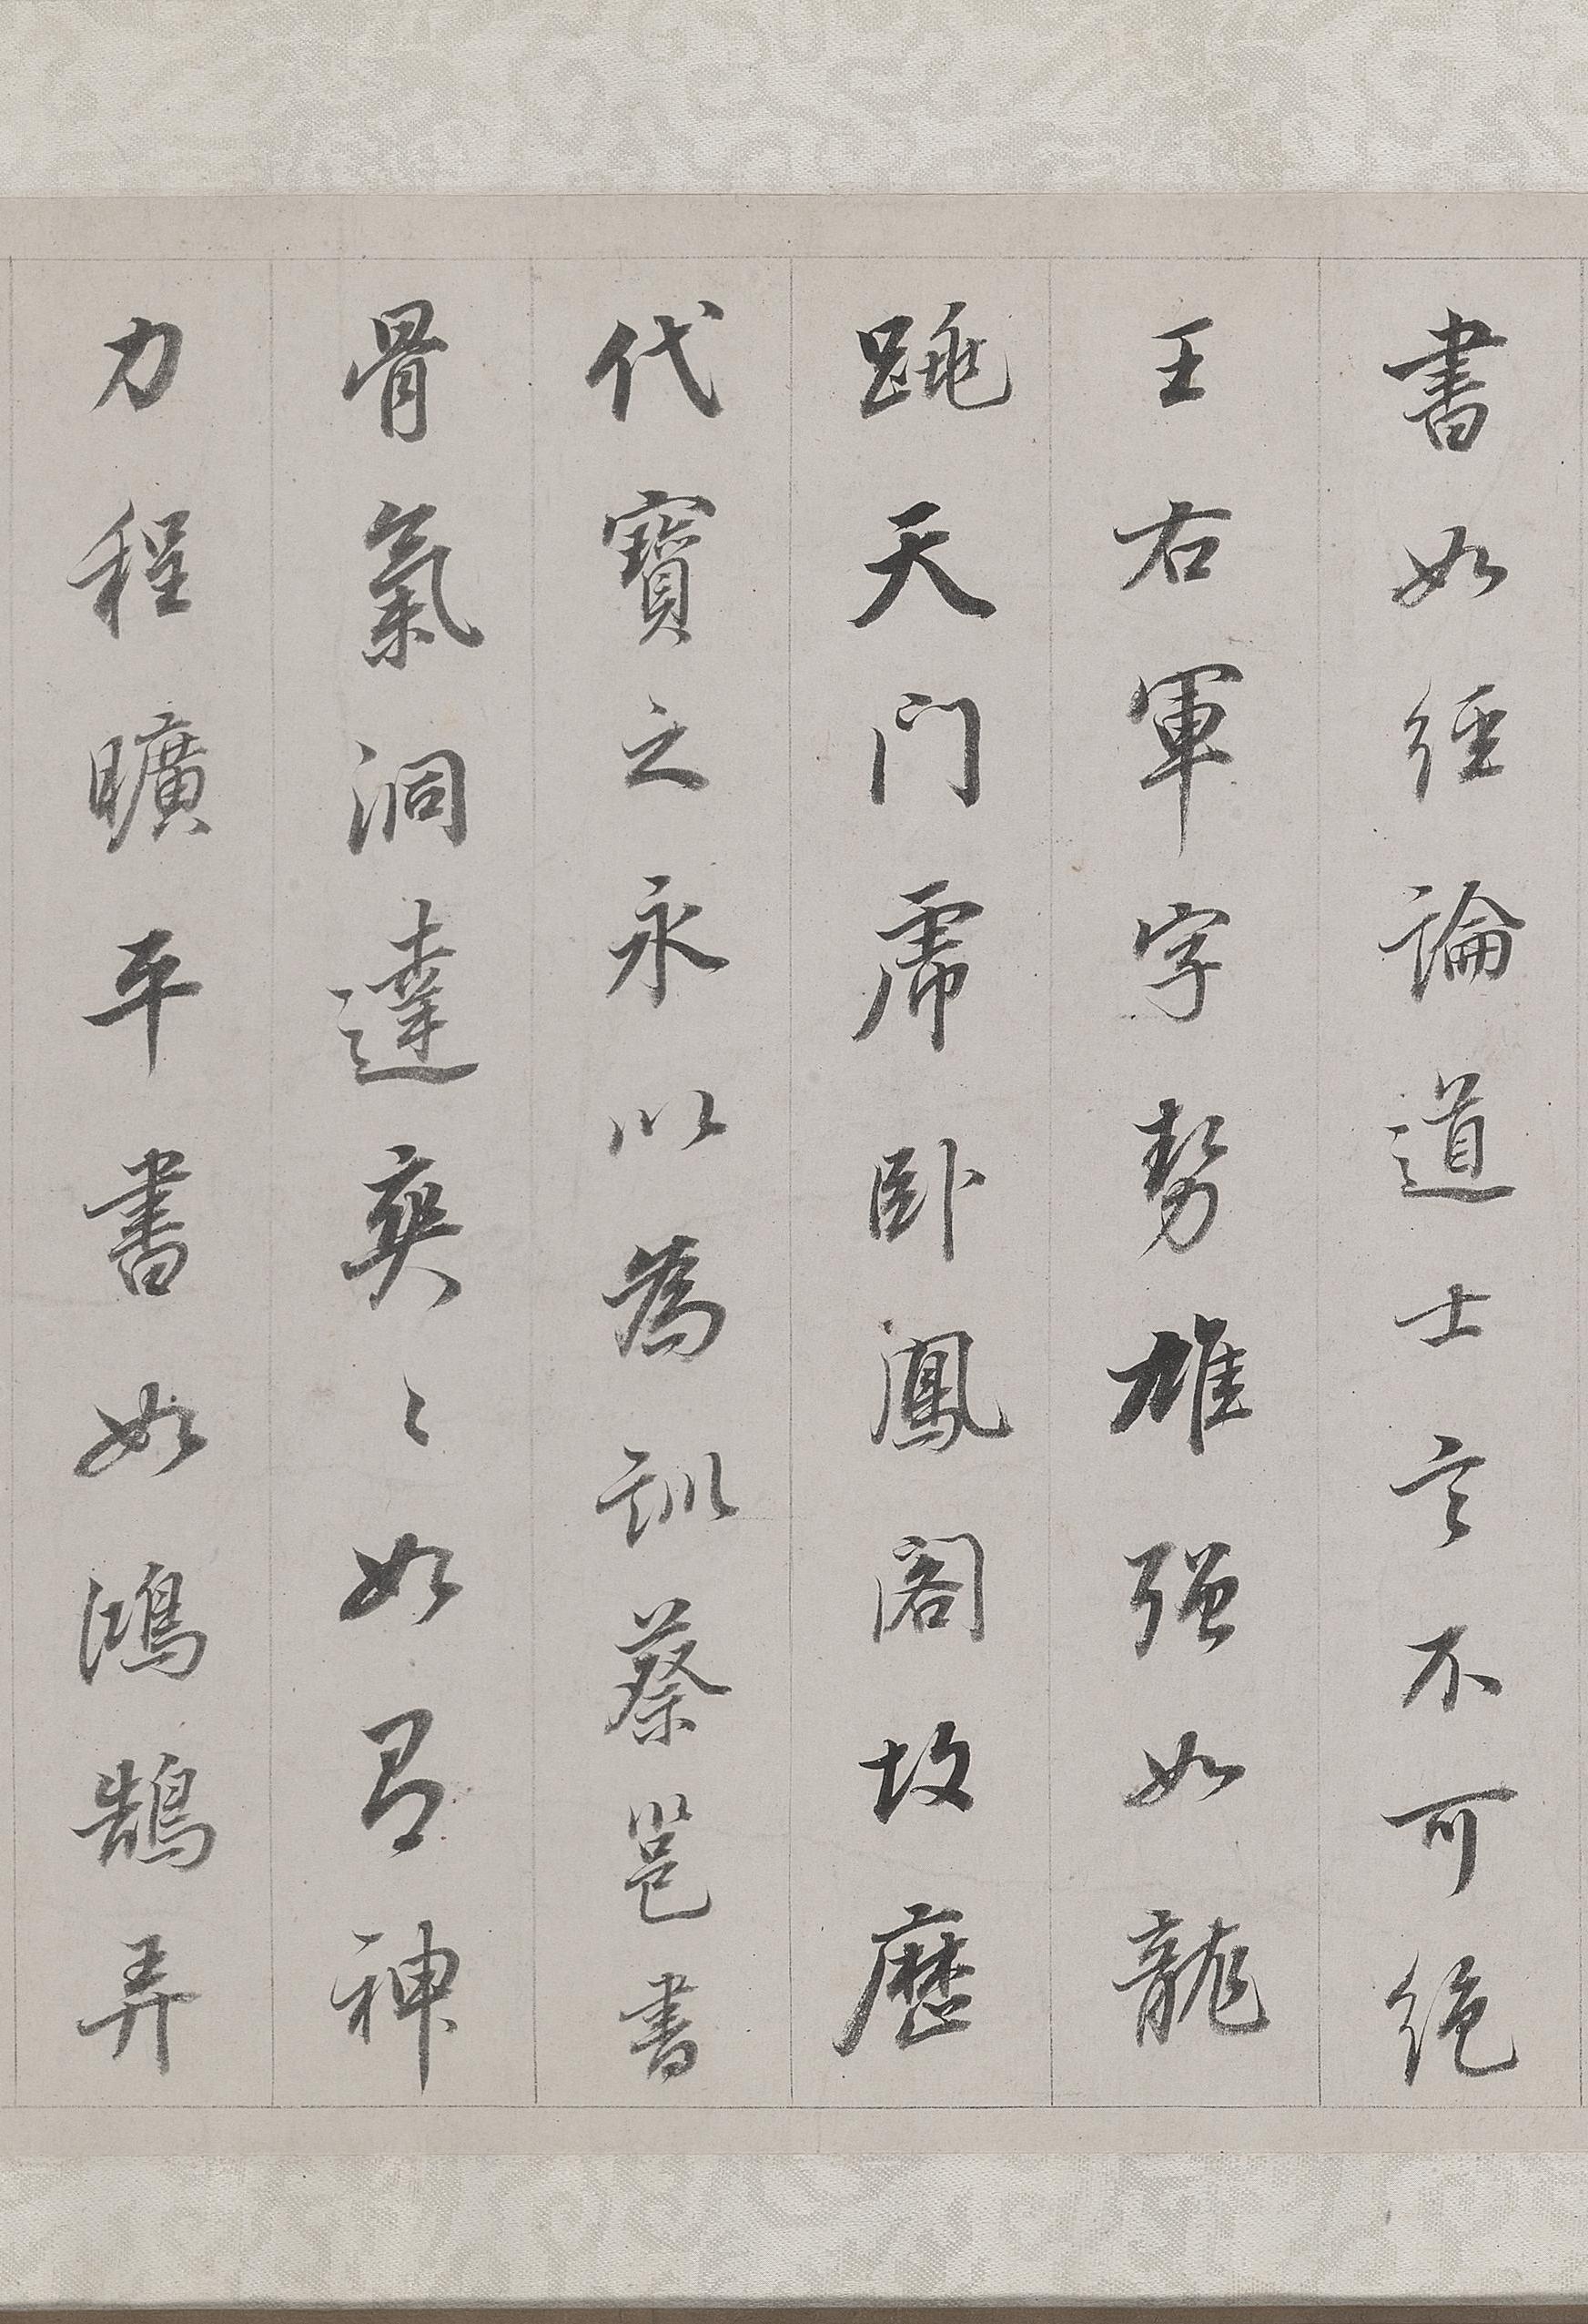 書如經論道士言不可絕
王右軍字勢雄强如龍
跳天門虎臥鳳閣故歷
代寶之永以為訓蔡邕書
骨氣洞達爽〻如有神
力程曠平書如鴻鵠弄